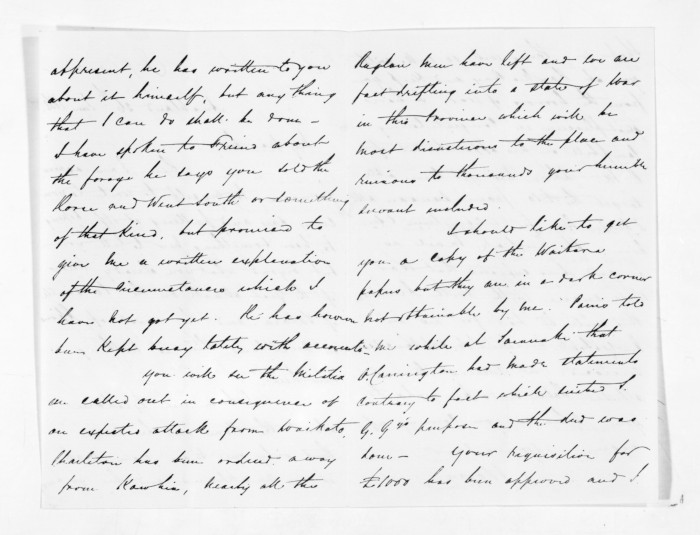 at present, he has written to you
about it himself, but any thing
that I can do shall be done –
I have spoken to Friend about
the forage he says you sold the
Horse and Went South or something
of that kind. but promised to
give me a written explanation
of the Circumstances which I
have not got yet. He has however
been Kept busy lately with accounts –
you will see the Militia
are called out in consequence of
an expected attack from Waikato,
Charleton has been ordered away
from Kawhia, nearly all the
Raglan men have left and we are
fast drifting into a state of War
in this Province which will be
most disasterous to the place and
ruinous to thousands your humble
servant included.
I should like to get
you a copy of the Waitara
papers but they are in a dark corner
not obtainable by me. Parris told
me while at Taranaki that
O. Carrington had made statements
contrary to fact which suited
G. G's purpose and the deed was
done – Your requisition for
£1000 has been approved and I